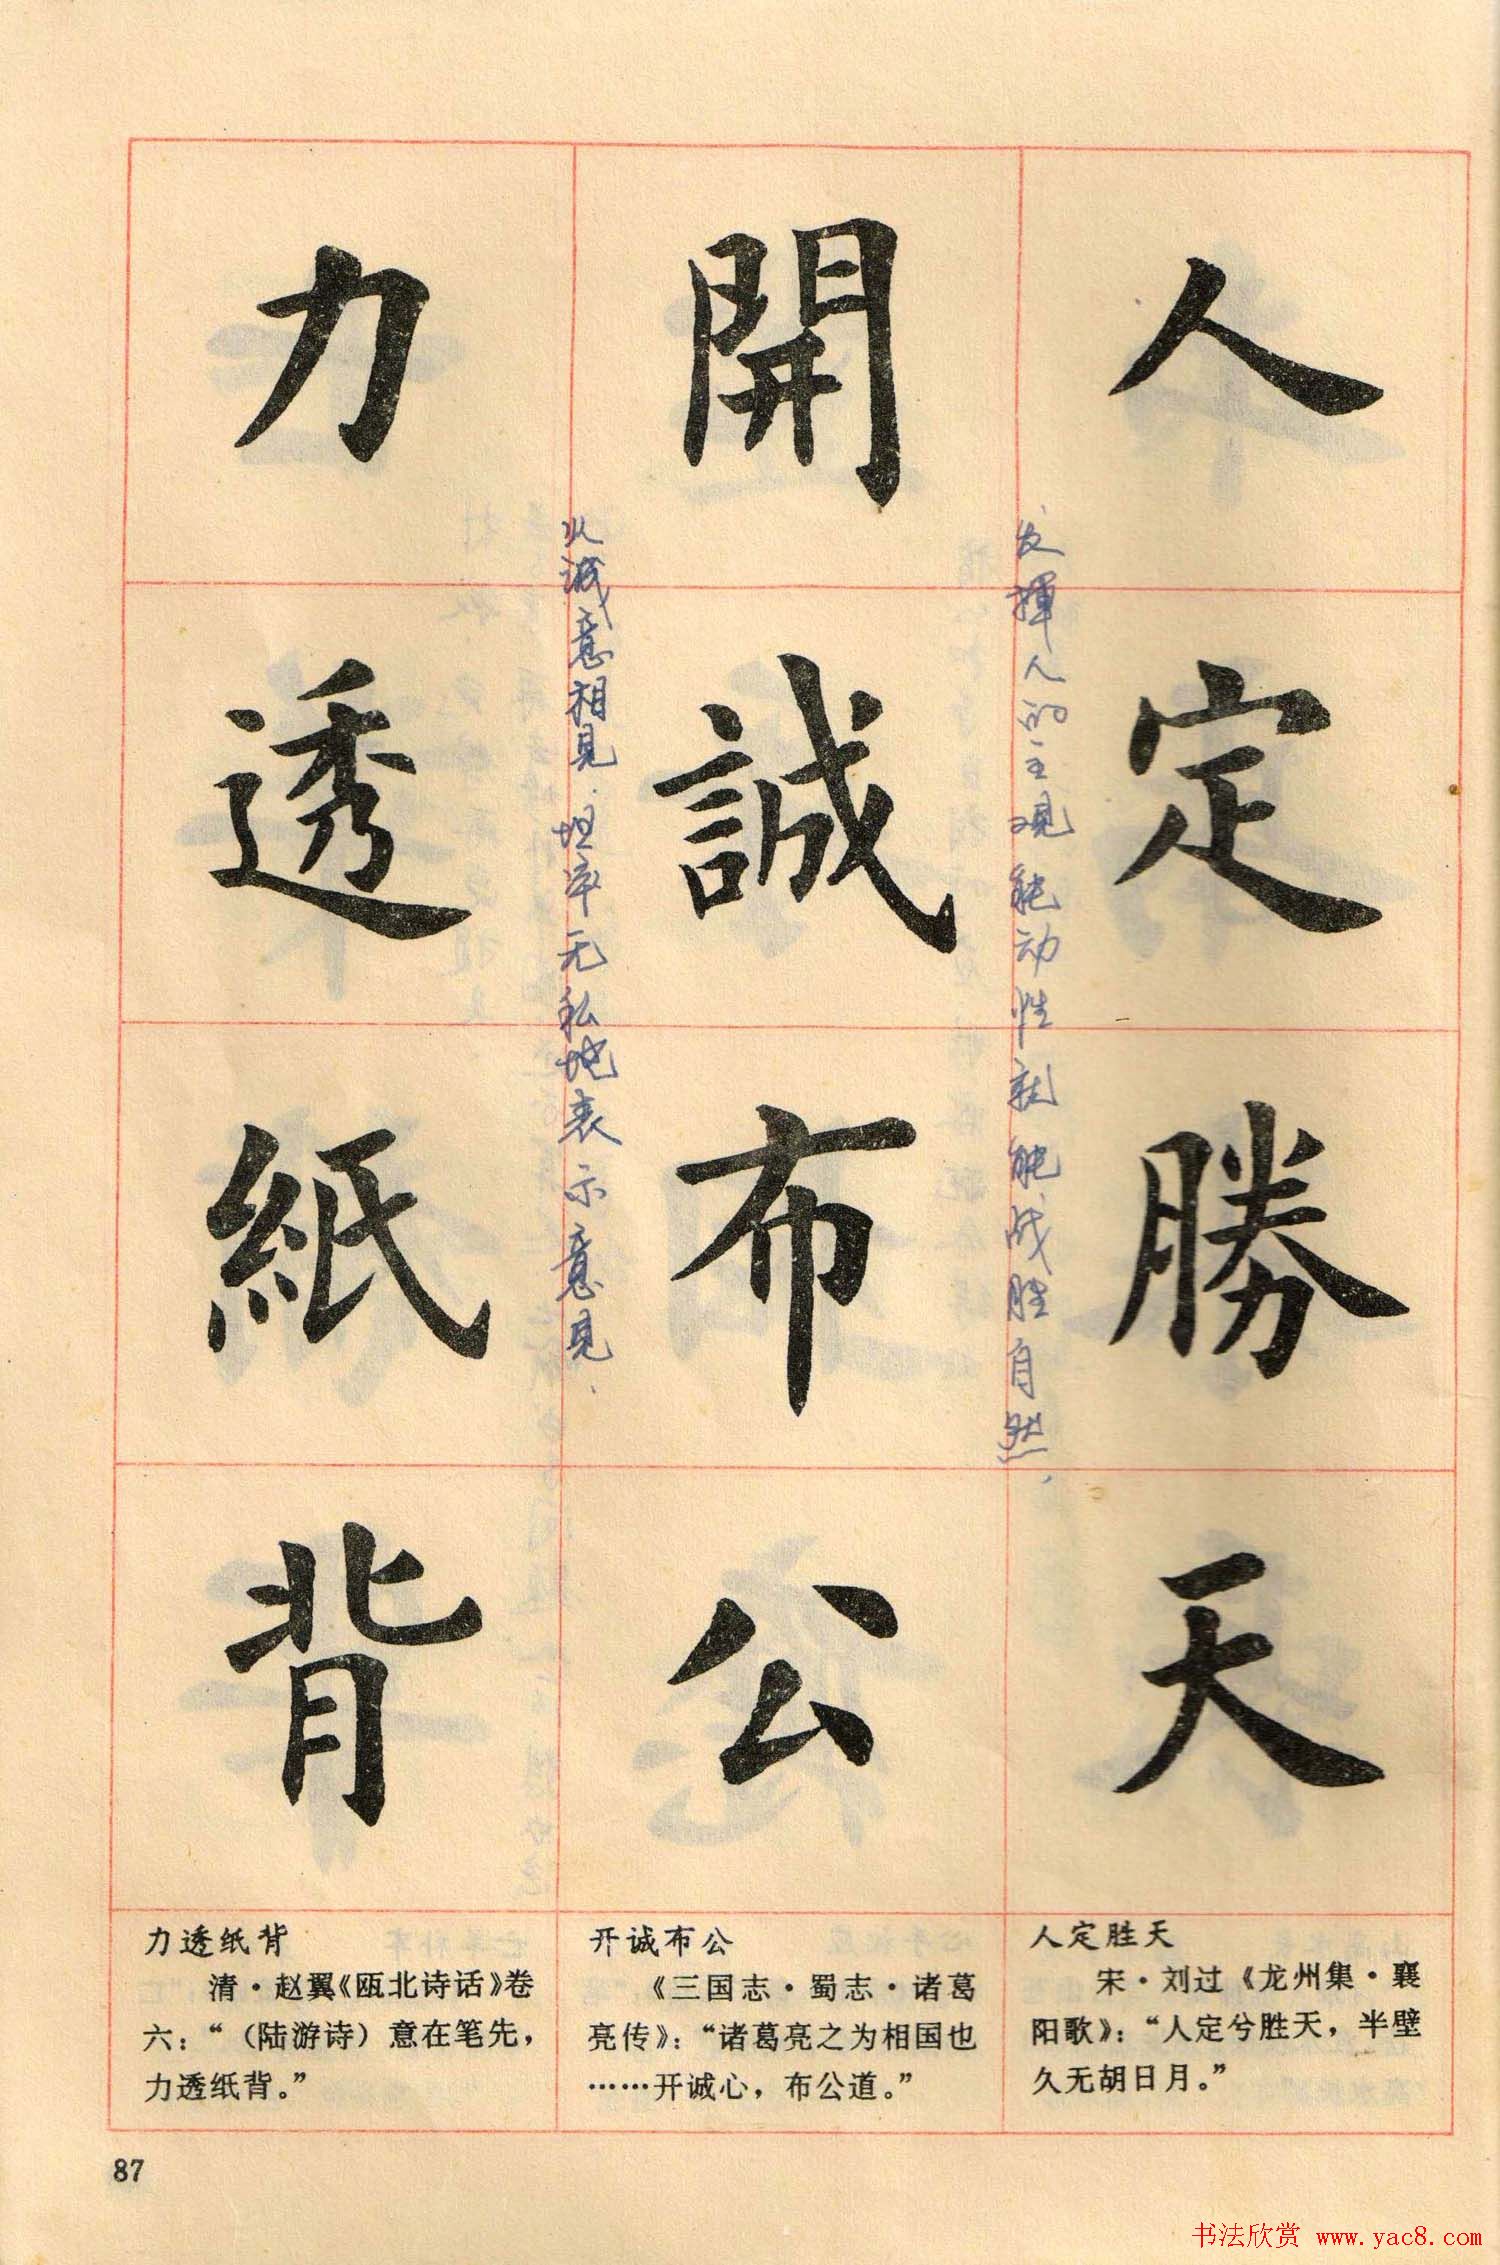 人定勝天
发揮人的主观能动性就能战胜自然、
開誠布公
以诚意相見.坦率无私地表示意見、
力透紙背
人定胜天
宋·刘过《龙州集·襄
阳歌》：“人定兮胜天，半壁
久无胡日月。”
开诚布公
《三国志·蜀志·诸葛
亮传》：“诸葛亮之为相国也
……开诚心，布公道。”
力透纸背
清·赵翼《瓯北诗话》卷
六：“（陆游诗）意在笔先，
力透纸背。”
87
书法欣赏 www.yac8.com